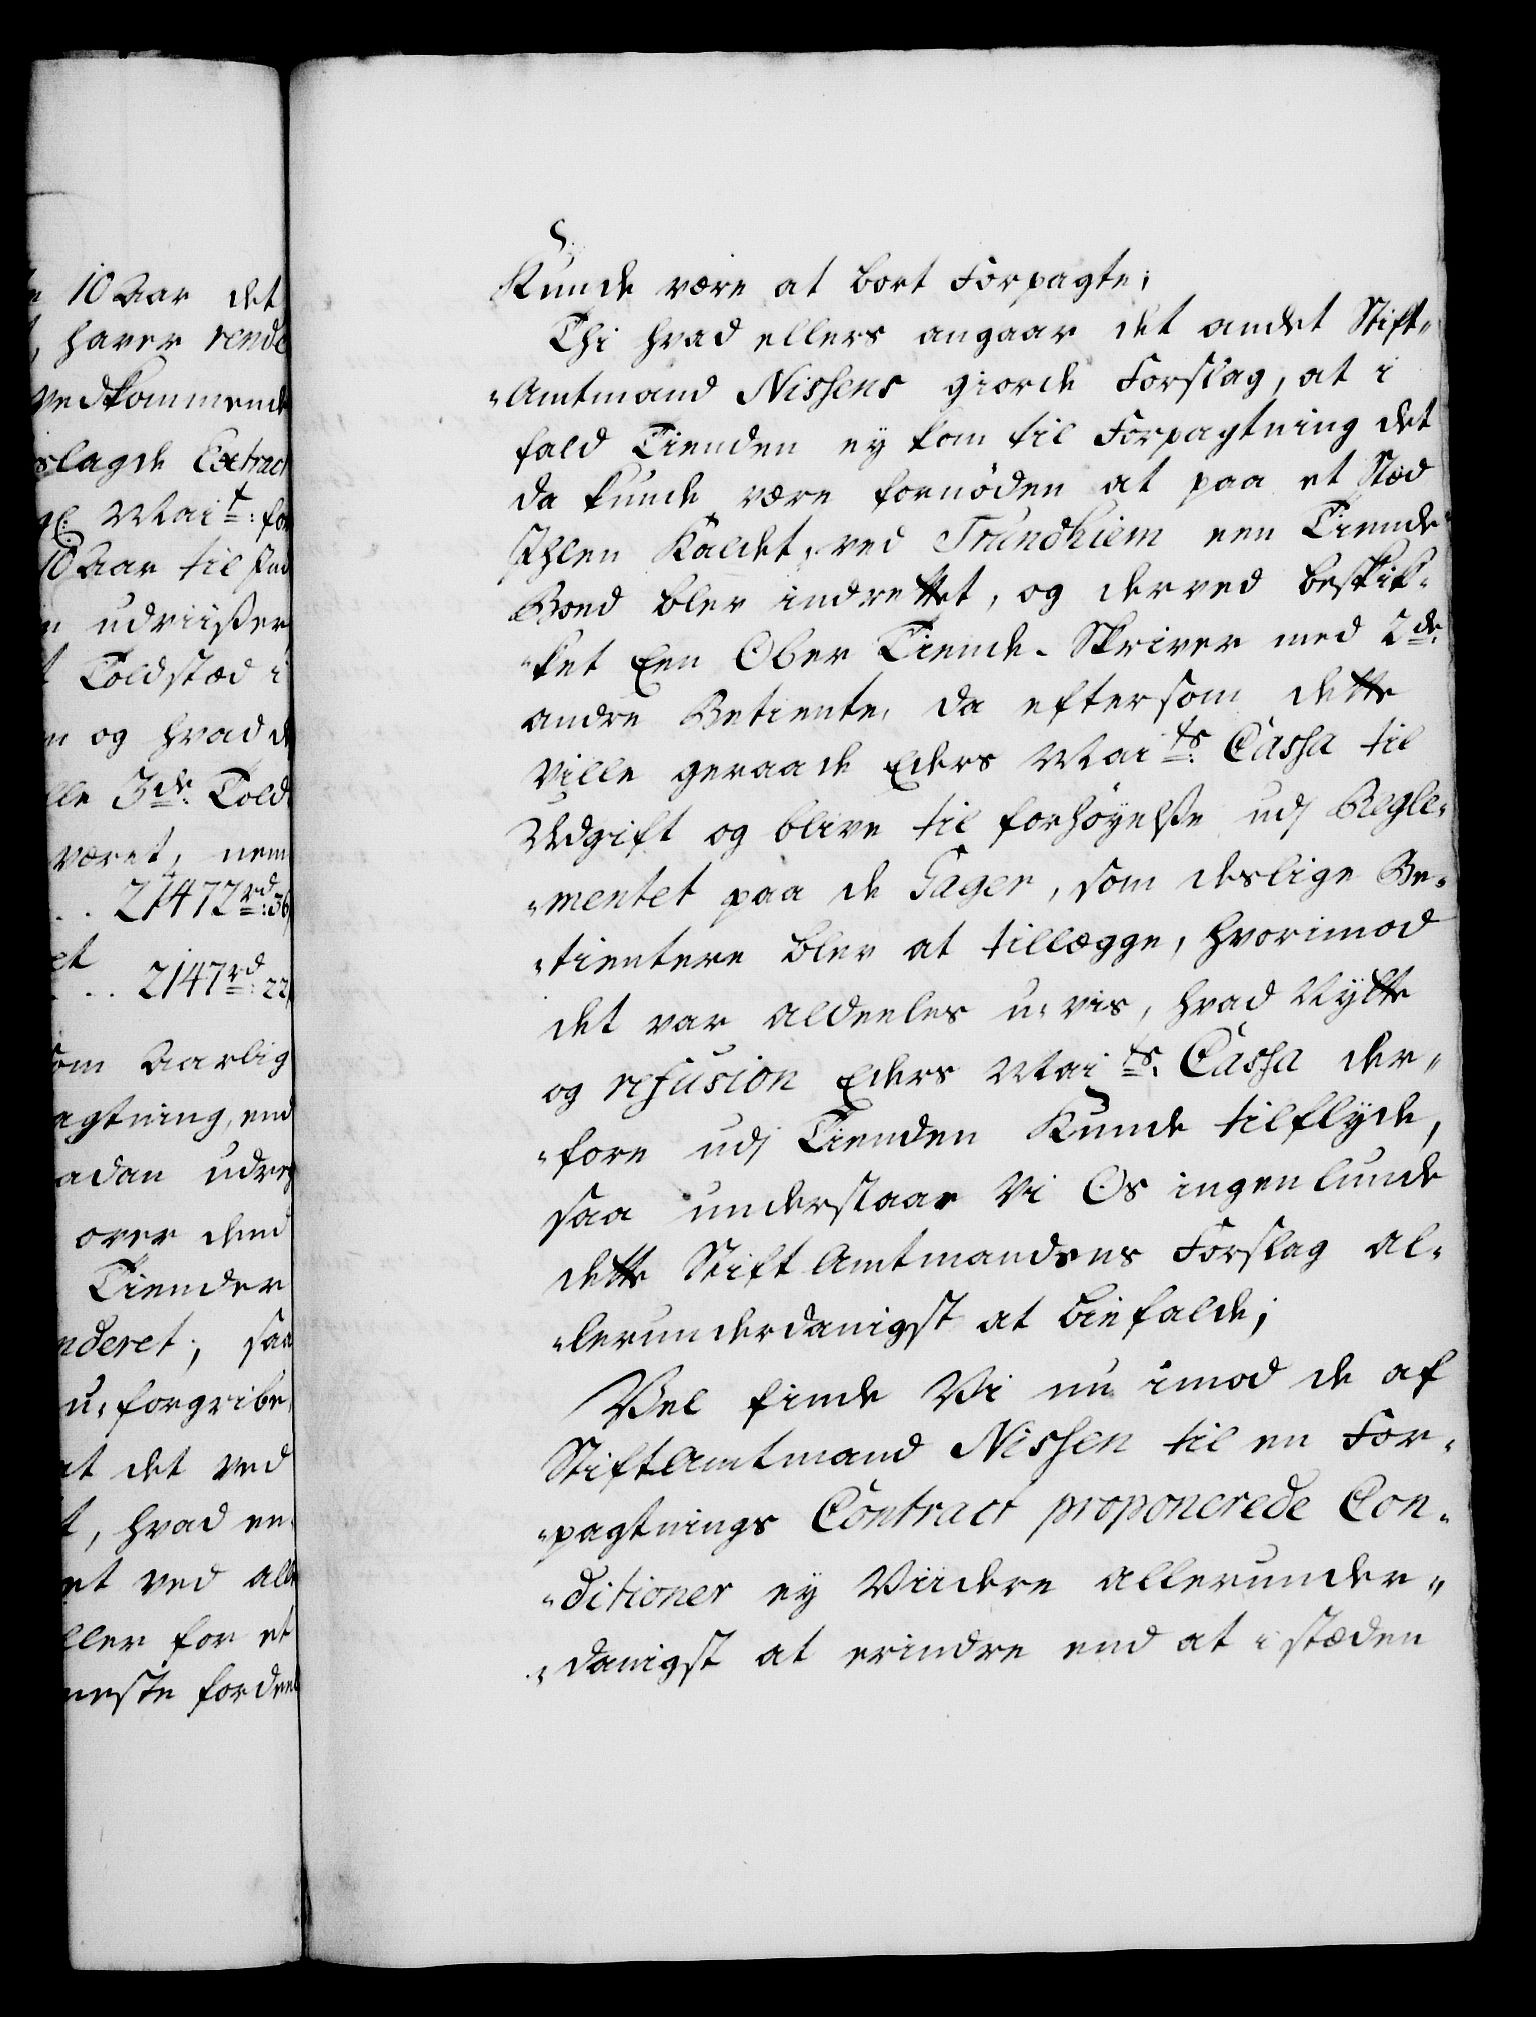 10 Aar det
haver rende
vedkommende
slagde Extract
Mai^t: for
10 Aar til fu
udriisser
Toldstæd i
og hvad d
lle 3^de: Told
været, nem
. . 21472^rd: 36
et
. . 2147^rd: 22
som Aarlig
agtning, end
adan udre
over dend
Tiender
nderet; saa
u-forgribe
at det ved
t, hvad en
et ved all
ller for et
neste fordeel
Kunde være at bort Forpagte;
Thi hvad ellers angaar det andet Stift-
-Amtmand Nissens giorde Forslag, at i
fald Tienden ey kom til Forpagtning det
da kunde være fornöden at paa et Stæd
Ihlen Kaldet, ved Trundhiem een Tiende
Boed blev indrettet, og derved beskik-
-ket Een Ober Tiende-Skriver med 2^de:
andre Betiente, da eftersom dette
ville geraade Eders Mai^ts: Cassa til
Udgift og blive til forhöyelße udj Regle-
-mentet paa de Gager, som deslige Be-
-tientere blev at tillægge, hvorimod
det var aldeeles u-vis, hvad Nytte
og refusion Eders Mai^ts: Cassa der-
-fore udj Tienden Kunde tilflyde,
saa understaar Vi Os ingenlunde
dette Stift Amtmandens Forslag al-
-lerunderdanigst at biefalde;
Vel finde Vi nu imod de af
StiftAmtmand Nissen til en For-
-pagtnings Contract proponerede Con-
-ditioner ey Viidere allerunder-
-danigst at erindre end at i stæden